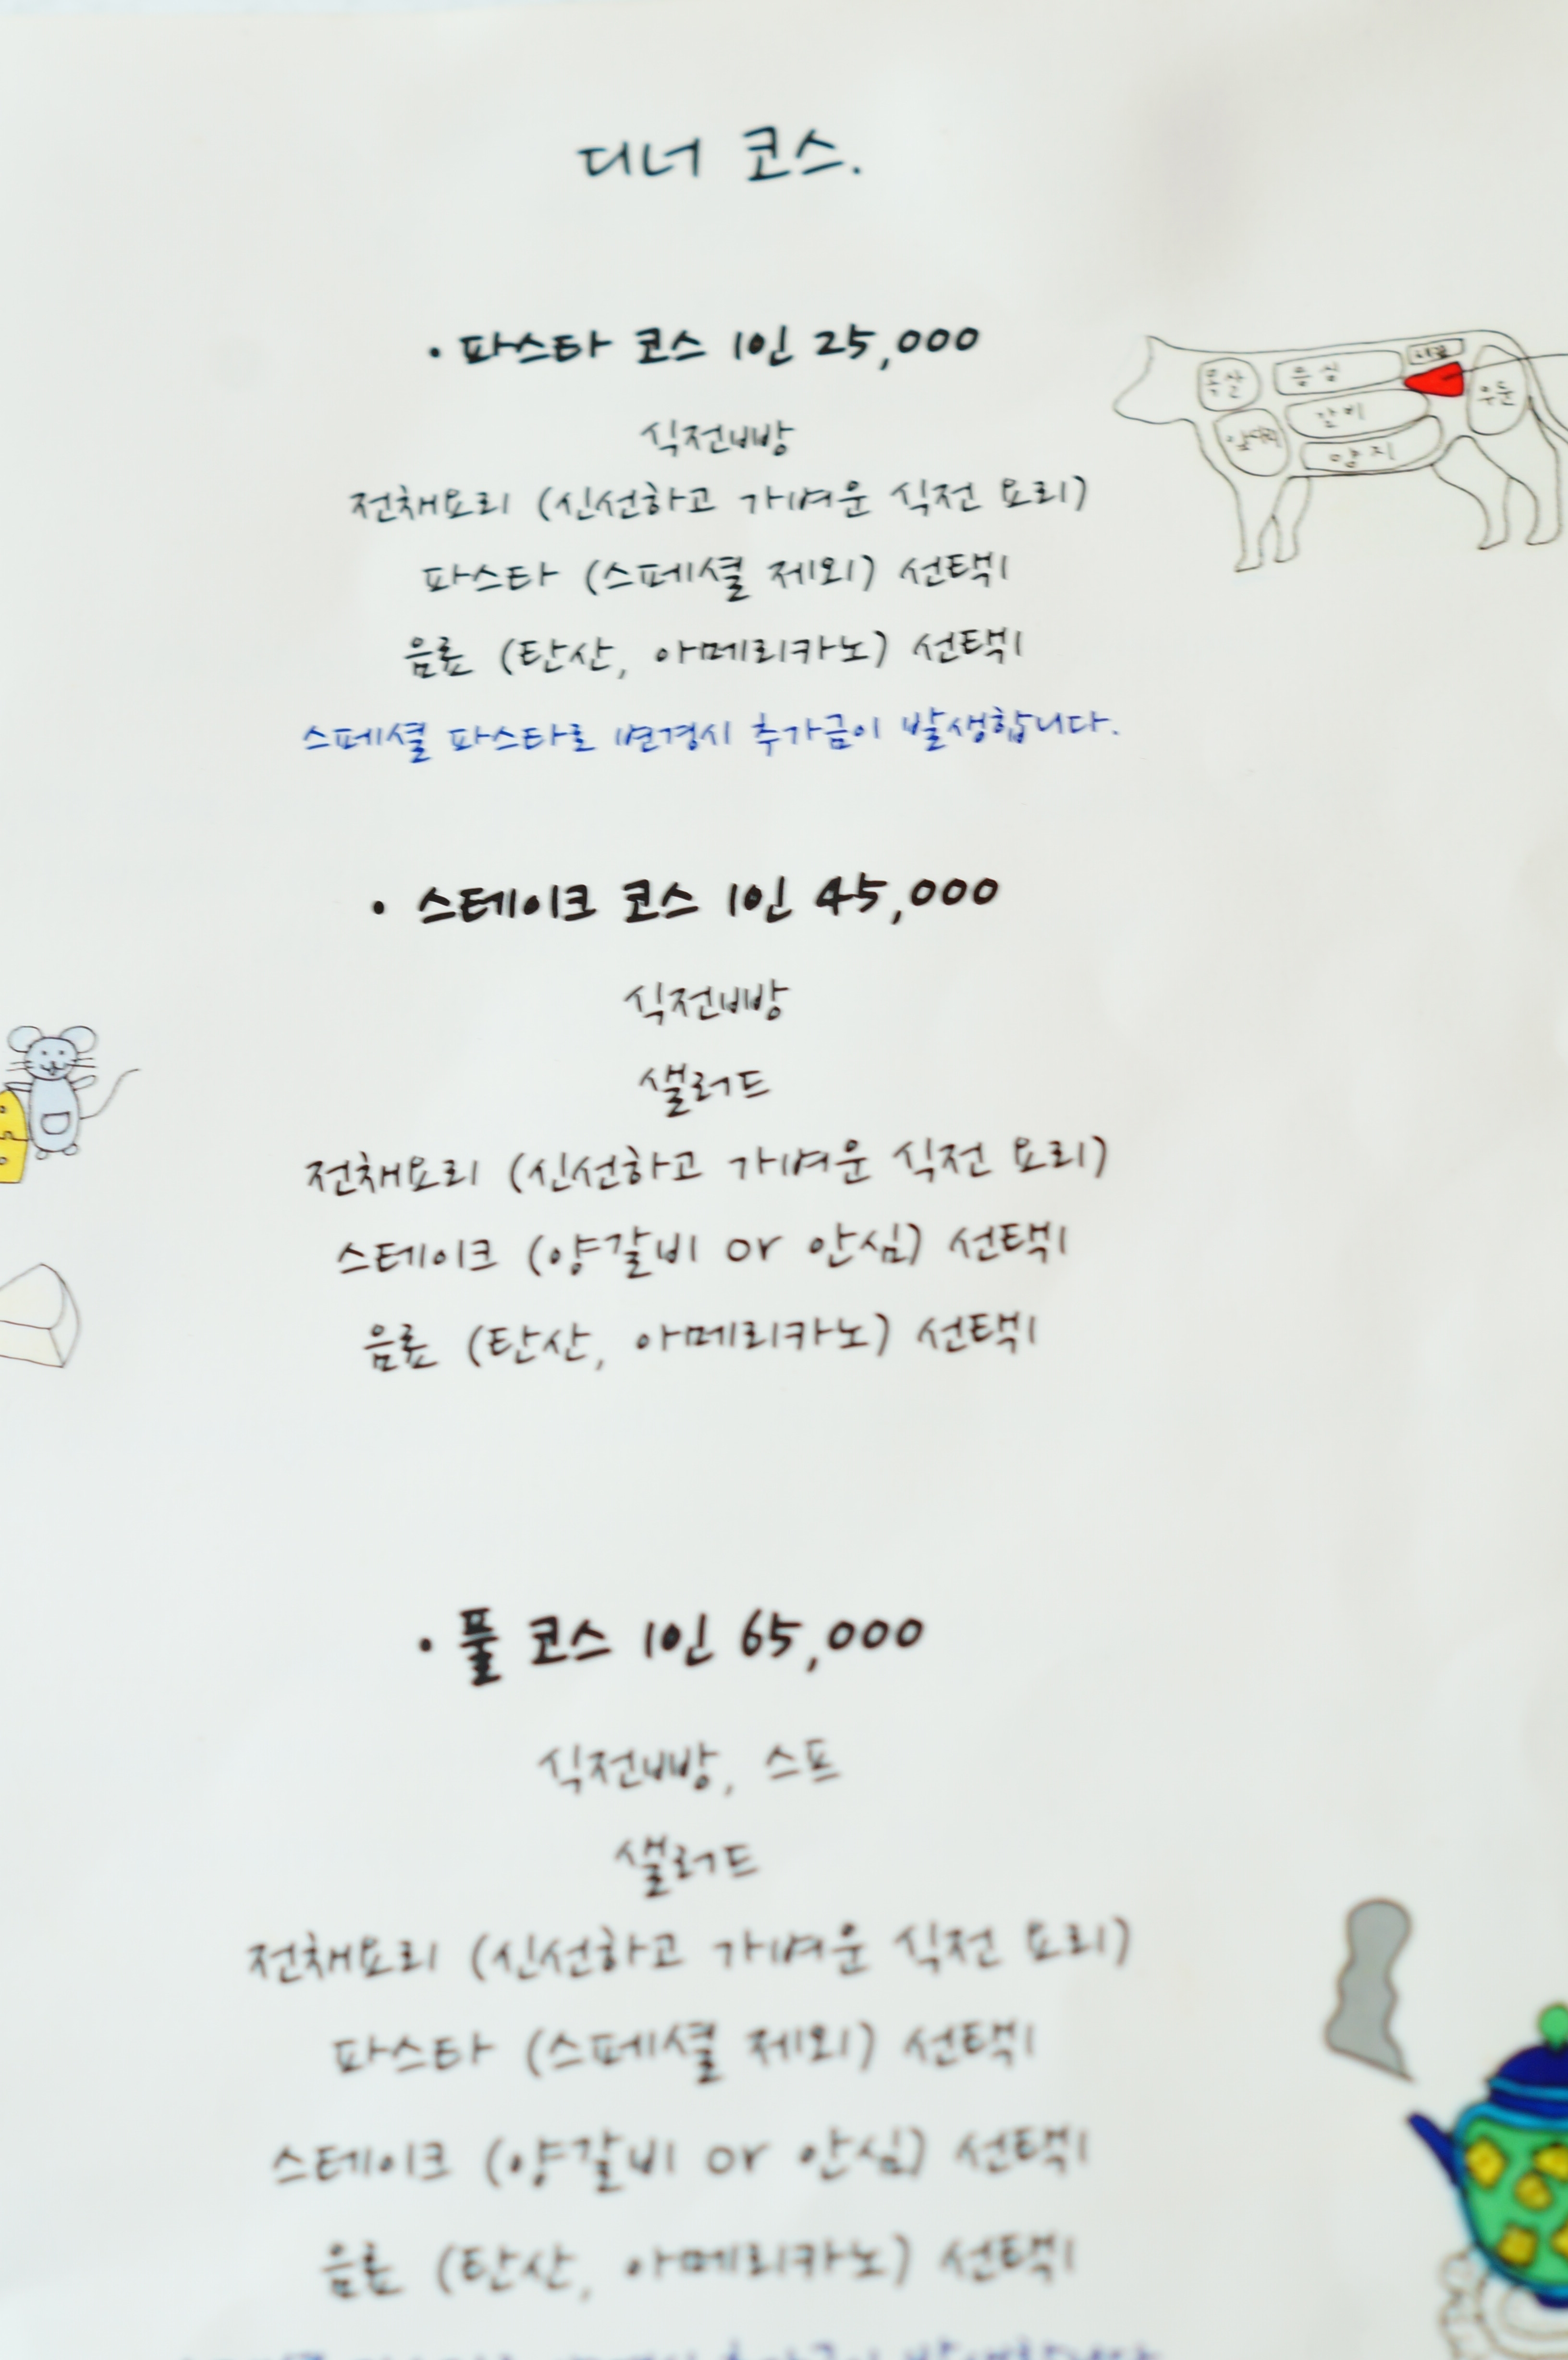 디너 코스.
· 파스타 코스 1인 25,000
식전빵
전채요리 (신선하고 가벼운 식전 요리)
파스타 (스페셜 제외) 선택1
음료 (탄산, 아메리카노) 선택1
스페셜 파스타로 변경시 추가금이 발생합니다.
목살
등심
갈비
양지
앞다리
우둔
· 스테이크 코스 1인 45,000
식전빵
샐러드
전채요리 (신선하고 가벼운 식전 요리)
스테이크 (양갈비 or 안심) 선택1
음료 (탄산, 아메리카노) 선택1
· 풀 코스 1인 65,000
식전빵, 스프
샐러드
전채요리 (신선하고 가벼운 식전 요리)
파스타 (스페셜 제외) 선택1
스테이크 (양갈비 or 안심) 선택1
음료 (탄산, 아메리카노) 선택1